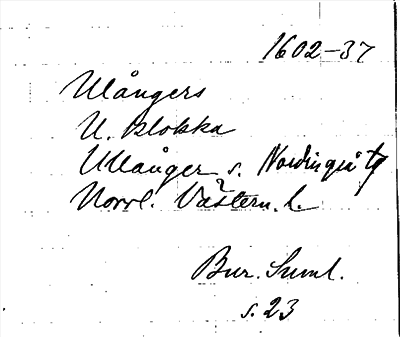 1602-37
Ulångers
U. klokka
Ullånger s. Nordingrå tg
Norrl. Västern. l.
Bur. Suml.
s. 23